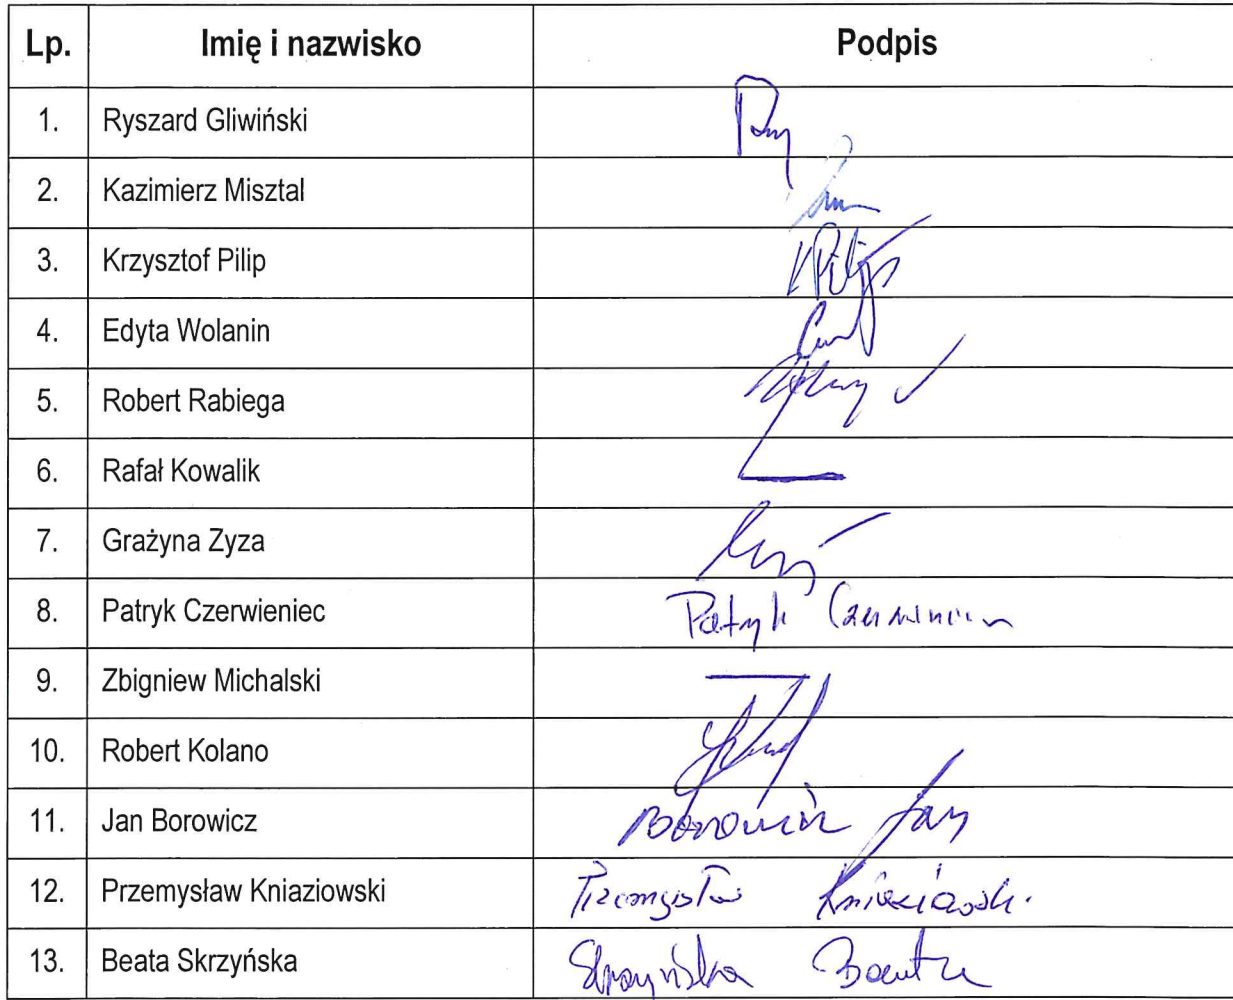 Lp. Imię i nazwisko Podpis
1. Ryszard Gliwiński
2. Kazimierz Misztal
3. Krzysztof Pilip KPilip
4. Edyta Wolanin
5. Robert Rabiega
6. Rafał Kowalik
7. Grażyna Zyza
8. Patryk Czerwieniec Patryk Czerwieniec
9. Zbigniew Michalski
10. Robert Kolano
11. Jan Borowicz Borowicz Jan
12. Przemysław Kniaziowski Przemysław Kniaziowski
13. Beata Skrzyńska Skrzyńska Beata